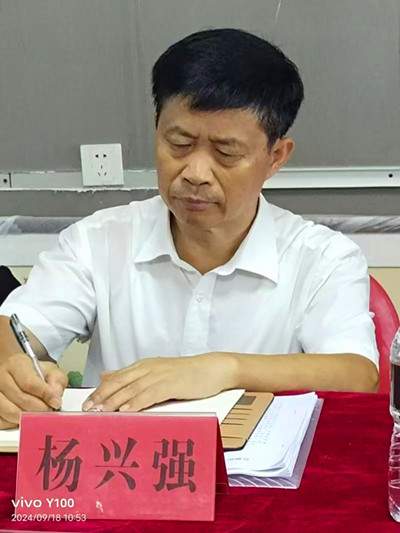 杨兴强
vivo Y100
2024/09/18 10:53